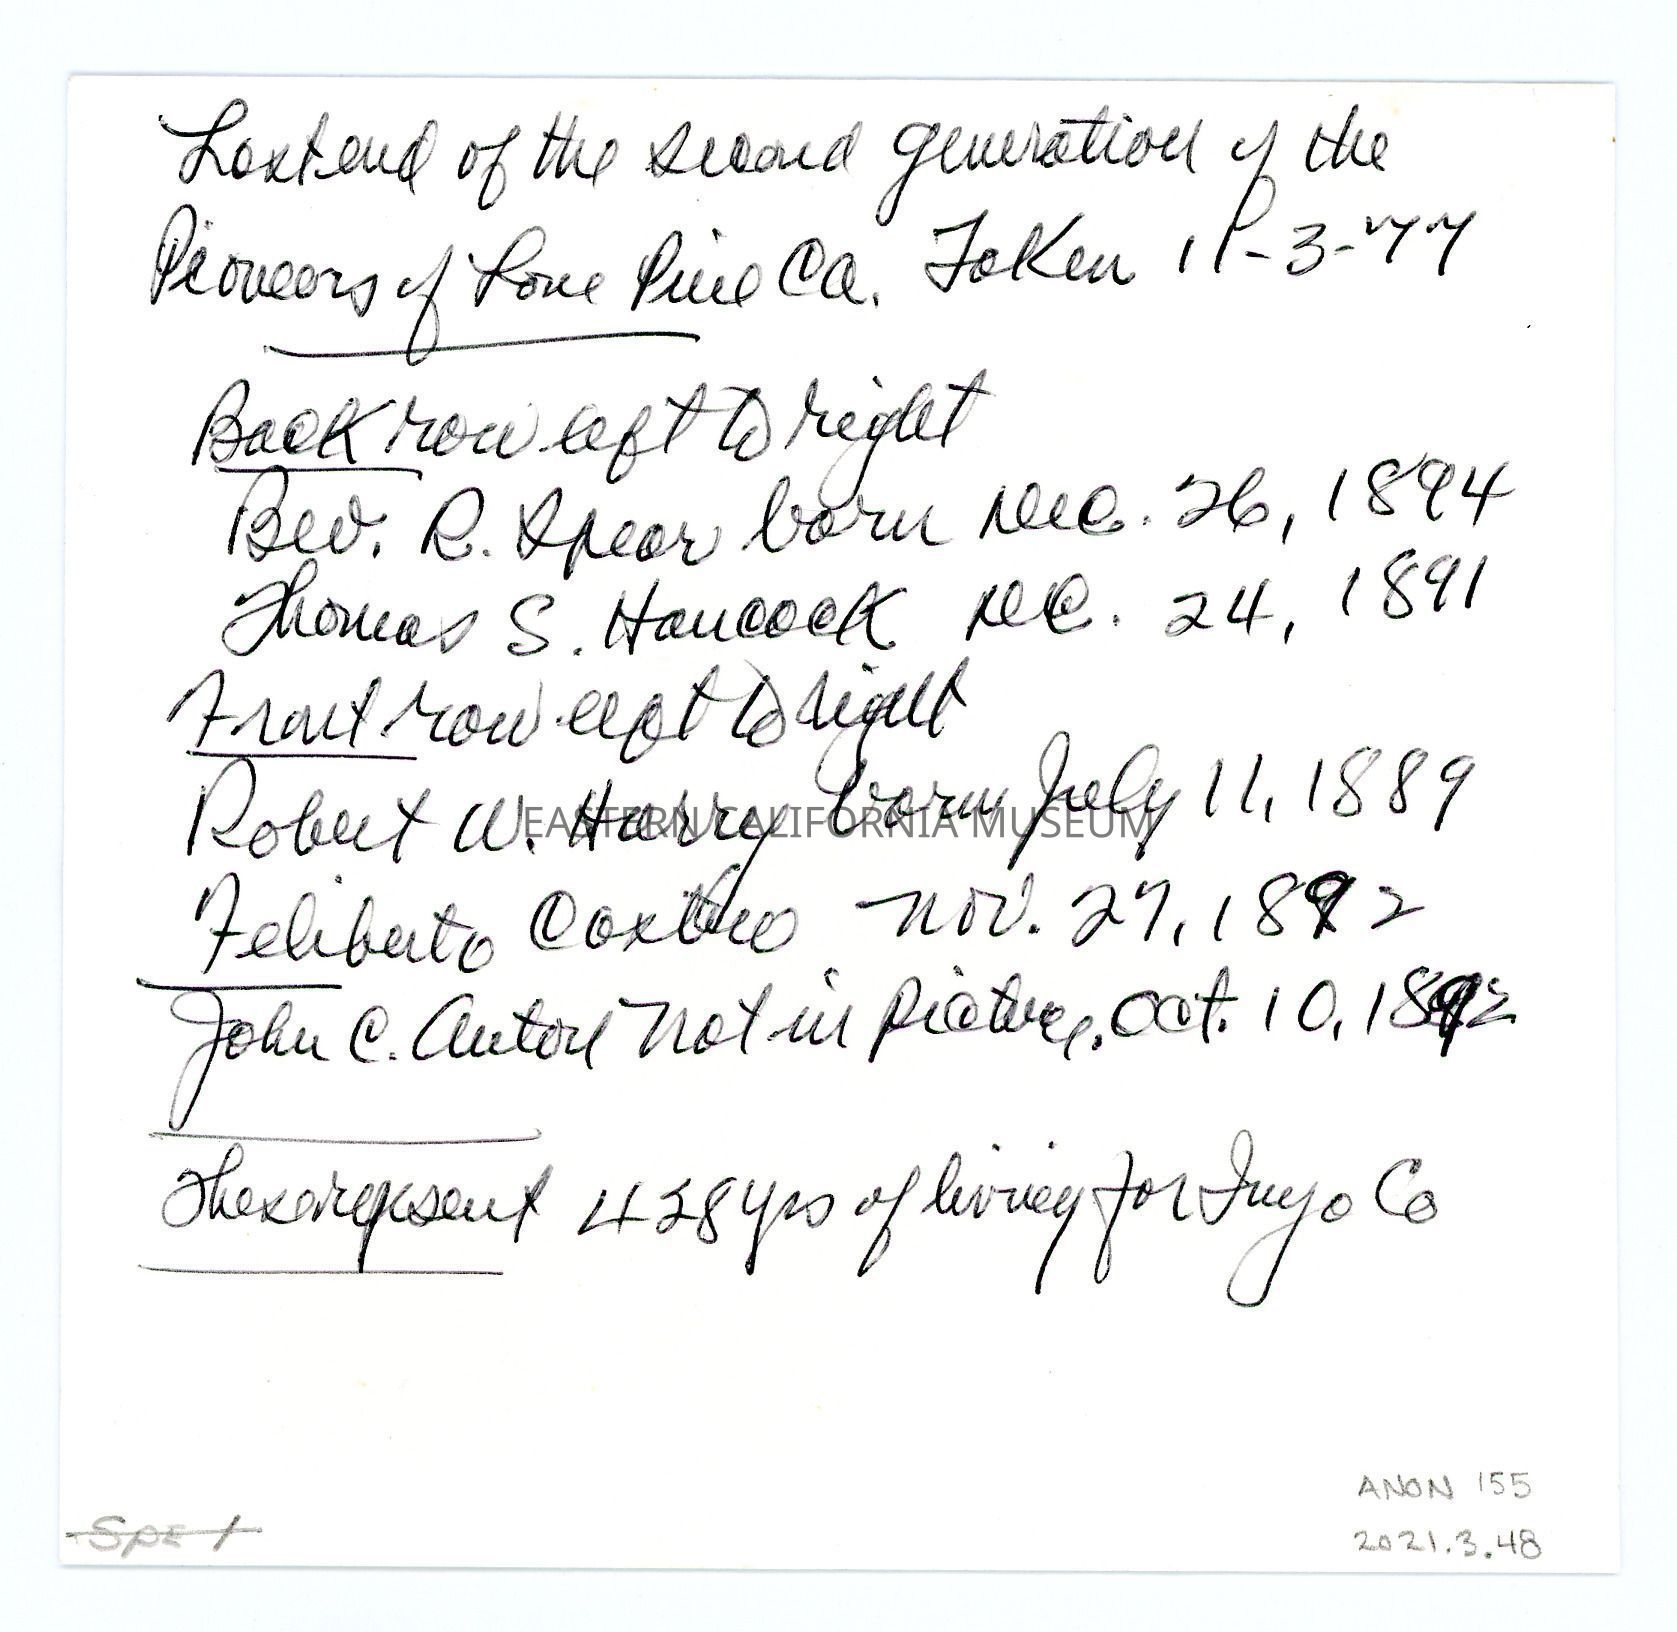 Last end of the second generation of the
Pioneers of Lone Pine Ca. Taken 11-3-77
Back row left to right
Bev. R. Spear born Dec. 26, 1894
Thomas S. Hancock Dec. 24, 1891
Front row left to right
Robert W. Harry born July 11, 1889
EASTERN CALIFORNIA MUSEUM
Feliberto Castro Nov. 27, 1892
John C. Anton Not in picture. Oct. 10, 1892
These represent 428 yrs of living for Inyo Co
ANON 155
SPE 1
2021.3.48